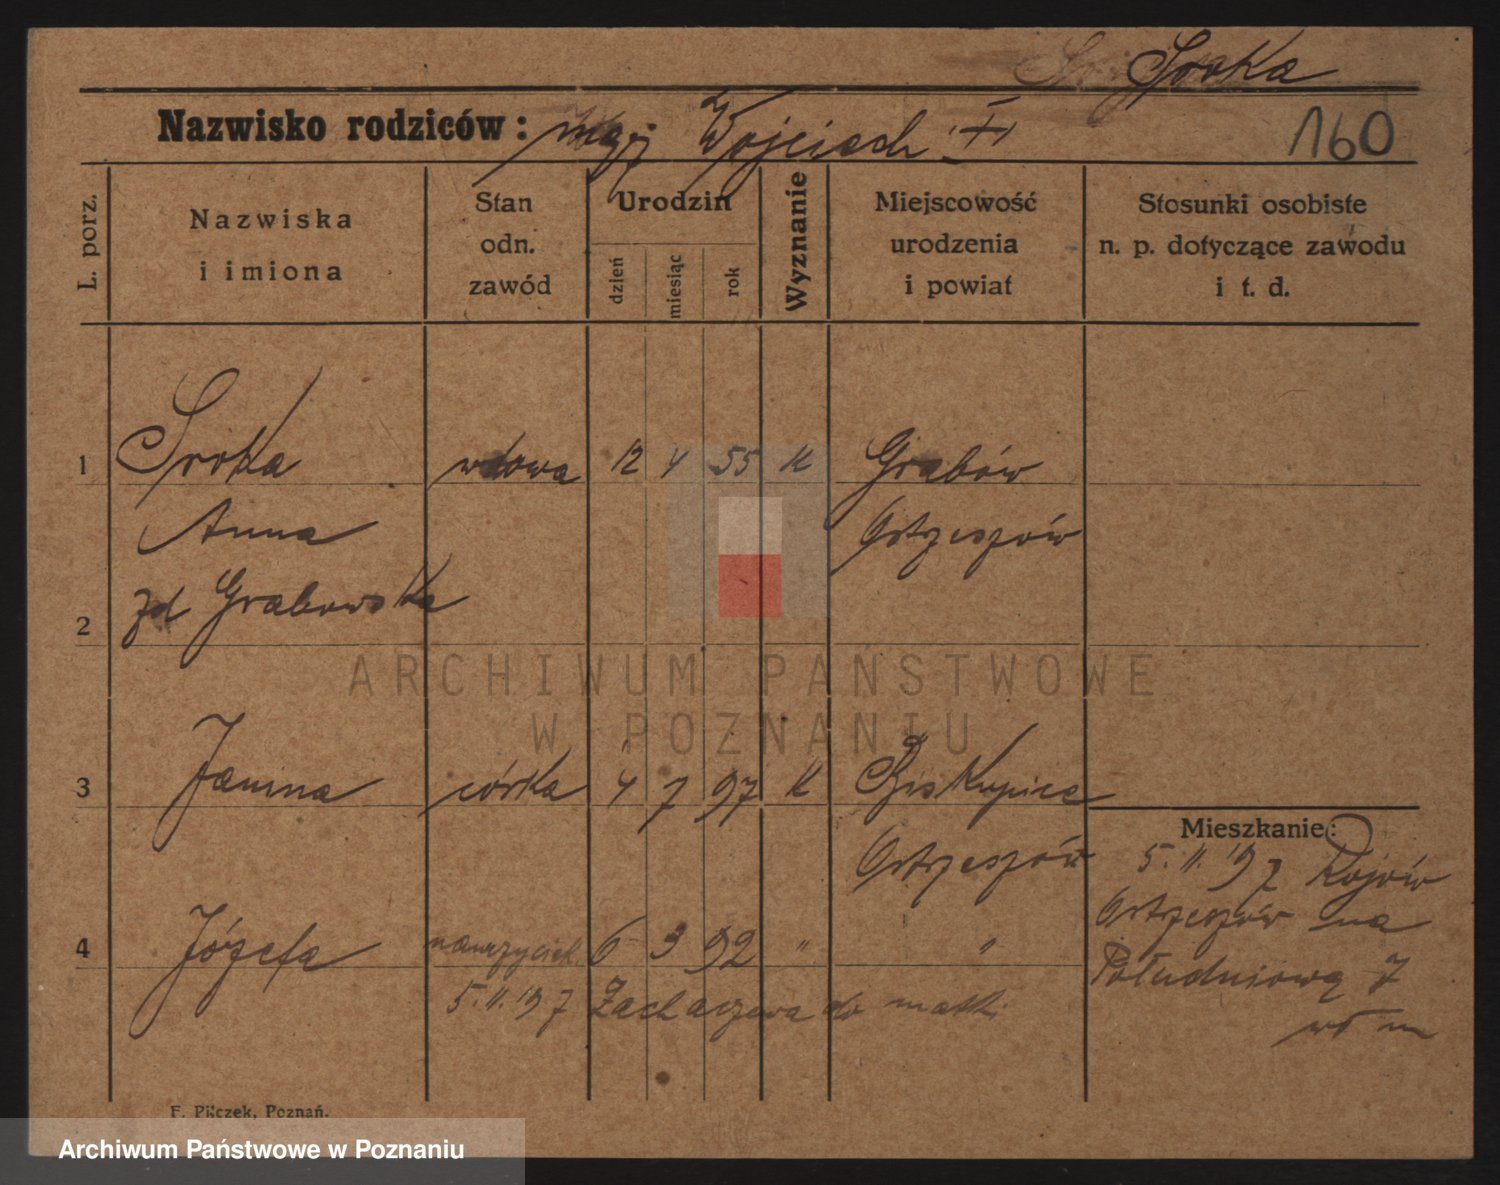 Sroka
Nazwisko rodziców: mąż Wojciech
160
L. porz.
Nazwiska
i imiona
Stan
odn.
zawód
Urodzin
dzień
miesiąc
rok
Wyznanie
Miejscowość
urodzenia
i powiat
Stosunki osobiste
n. p. dotyczące zawodu
i t. d.
1 Sroka wdowa 12 4 55 K Grabów
Anna Ostrzeszów
2 zd Grabowska
ARCHIWUM PAŃSTWOWE
W POZNANIU
3 Janina córka 4 7 97 K Biskupice
Mieszkanie:
Ostrzeszów 5. 11. 197 Rojów
Ostrzeszów na
4 Józefa nauczyciel. 6 3 92 " "
Południową 7
5. 11. 197 do matki
F. Pilczek, Poznań.
Archiwum Państwowe w Poznaniu